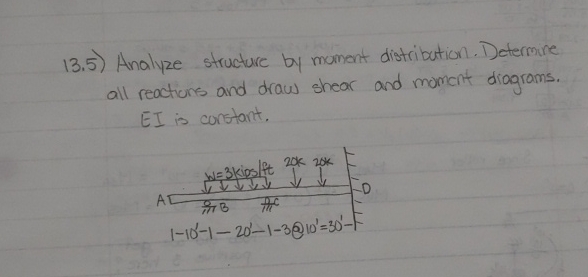 13.5) Analyze structure by moment distribution. Determine
all reactions and draw shear and moment diagrams.
EI is constant.
w=3kips/ft 20k 20k
A D
B C
1-10'-1-20'-1-3@10'=30'-1